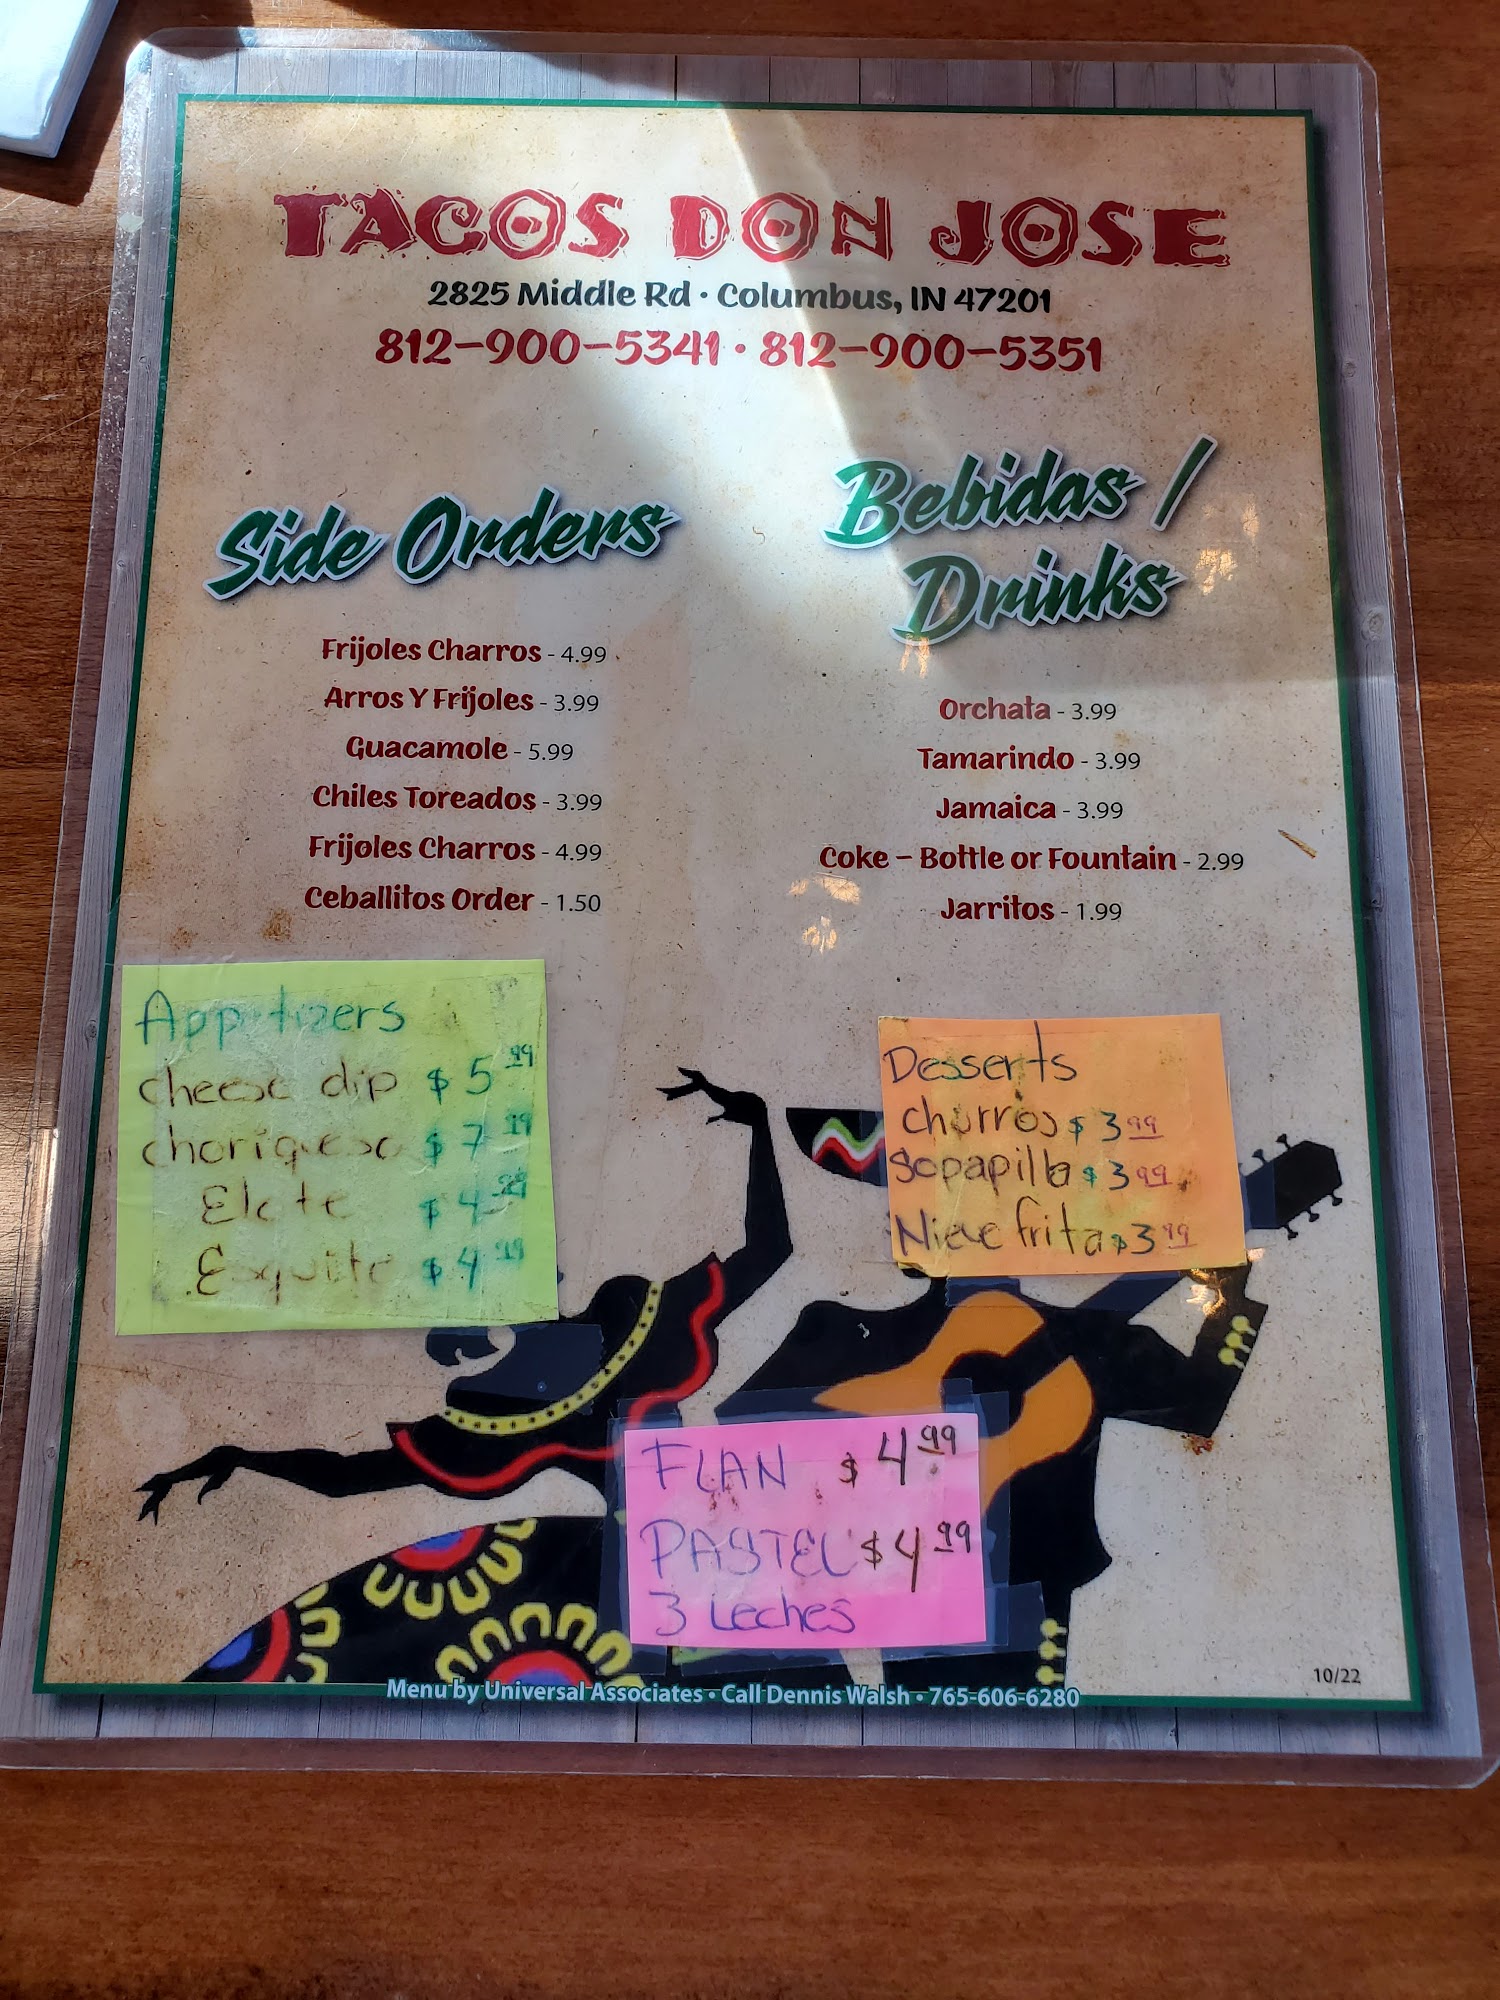 TACOS DON JOSE
2825 Middle Rd • Columbus, IN 47201
812-900-5341 • 812-900-5351
Side Orders
Frijoles Charros - 4.99
Arros Y Frijoles - 3.99
Guacamole - 5.99
Chiles Toreados - 3.99
Frijoles Charros - 4.99
Ceballitos Order - 1.50
Bebidas /
Drinks
Orchata - 3.99
Tamarindo - 3.99
Jamaica - 3.99
Coke – Bottle or Fountain - 2.99
Jarritos - 1.99
Appetizers
cheese dip $5.99
choriqueso $7.99
Elote $4.99
Esquite $4.99
Desserts
churros $3.99
Sopapilla $3.99
Nieve frita $3.99
FLAN $4.99
PASTEL $4.99
3 Leches
Menu by Universal Associates • Call Dennis Walsh • 765-606-6280
10/22